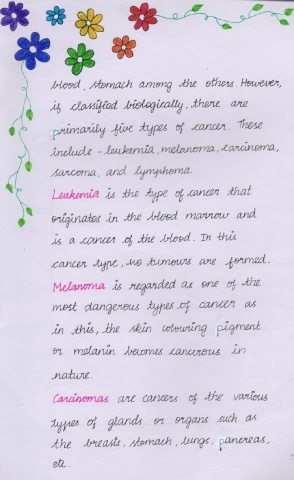 blood, stomach among the others. However,
if classified biologically, there are
primarily five types of cancer. These
include - leukemia, melanoma, carcinoma,
sarcoma, and lymphoma.
Leukemia is the type of cancer that
originates in the blood marrow and
is a cancer of the blood. In this
cancer type, no tumours are formed.
Melanoma is regarded as one of the
most dangerous types of cancer as
in this, the skin colouring pigment
or melanin becomes cancerous in
nature.
Carcinomas are cancers of the various
types of glands or organs such as
the breasts, stomach, lungs, pancreas,
etc.